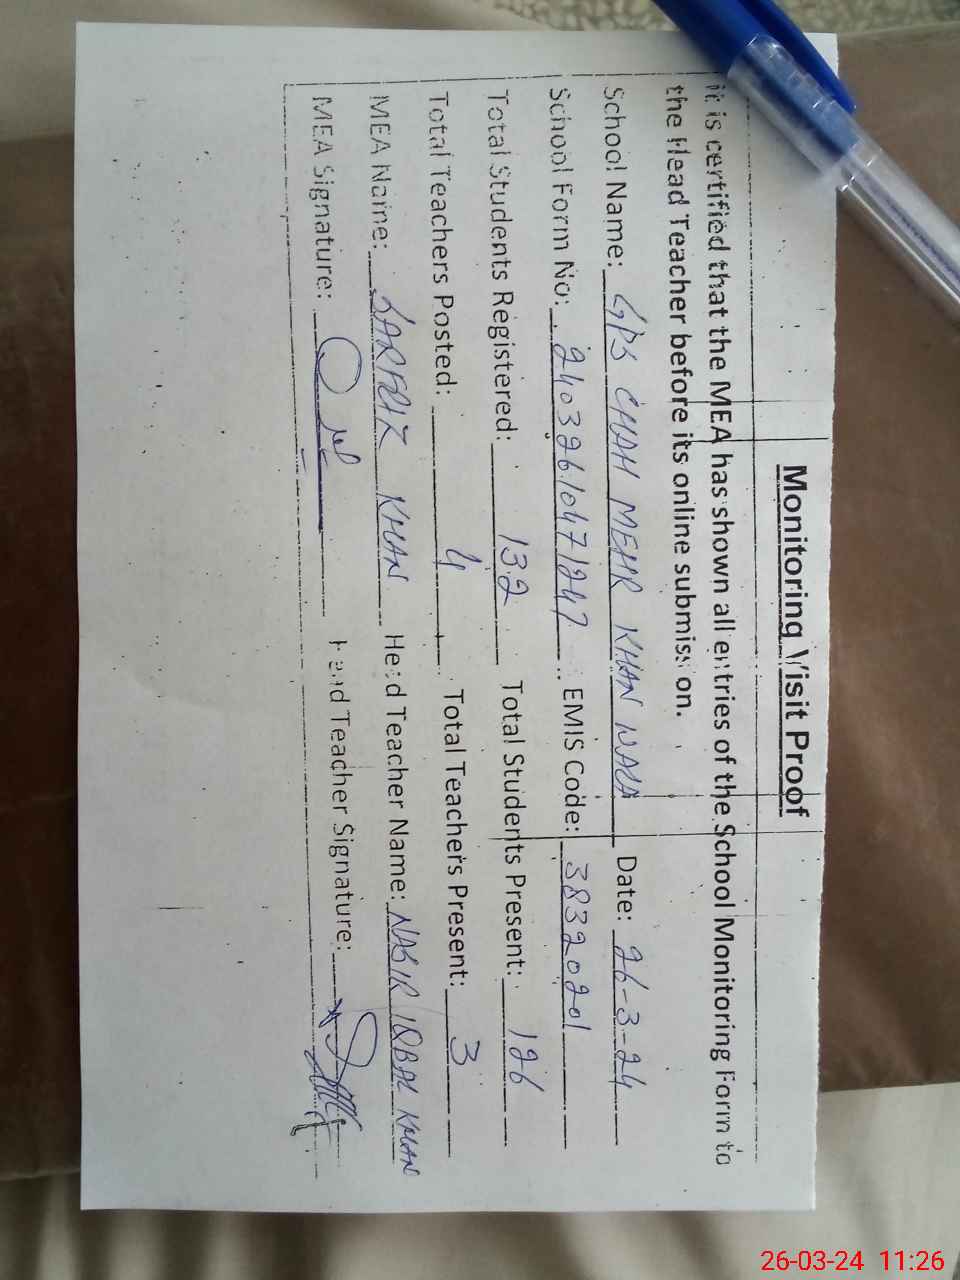 Monitoring Visit Proof
it is certified that the MEA has shown all entries of the School Monitoring Form to
the Head Teacher before its online submission.
School Name: GPS CHAH MEHR KHAN WALA Date: 26-3-24
School Form No: 24032610471247 EMIS Code: 38320201
Total Students Registered: 132 Total Students Present: 126
Total Teachers Posted: 4 Total Teachers Present: 3
MEA Name: SARFRAZ KHAN Head Teacher Name: NASIR IQBAL KHAN
MEA Signature: Head Teacher Signature:
26-03-24 11:26